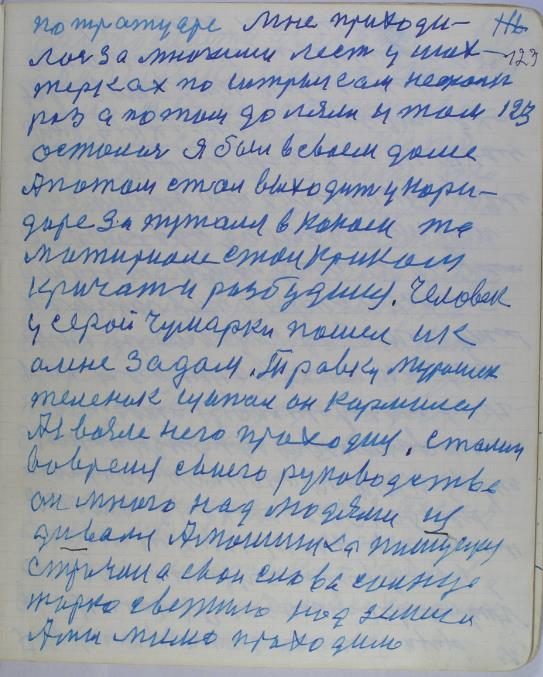 по тратуаре Мне приходи-
лоя за многими лест у шах- 123
терках по
раз а потом до ляли и там 123
остоноя Я был в своем доме
А потом стал выходит у кори-
доре За тутали в каком то
матирияле стал криком
Кричат и разбудиця. Человек
у серой Чумарки пошел ик
о мне Задам. Травку
теленок щипал он кармился
А я возле него праходил. Сталин
вовремя своего руководства
он много над людями из
дивался А машинка
строчила свои слова солнце
жарко светило над землей
А мы мимо праходили